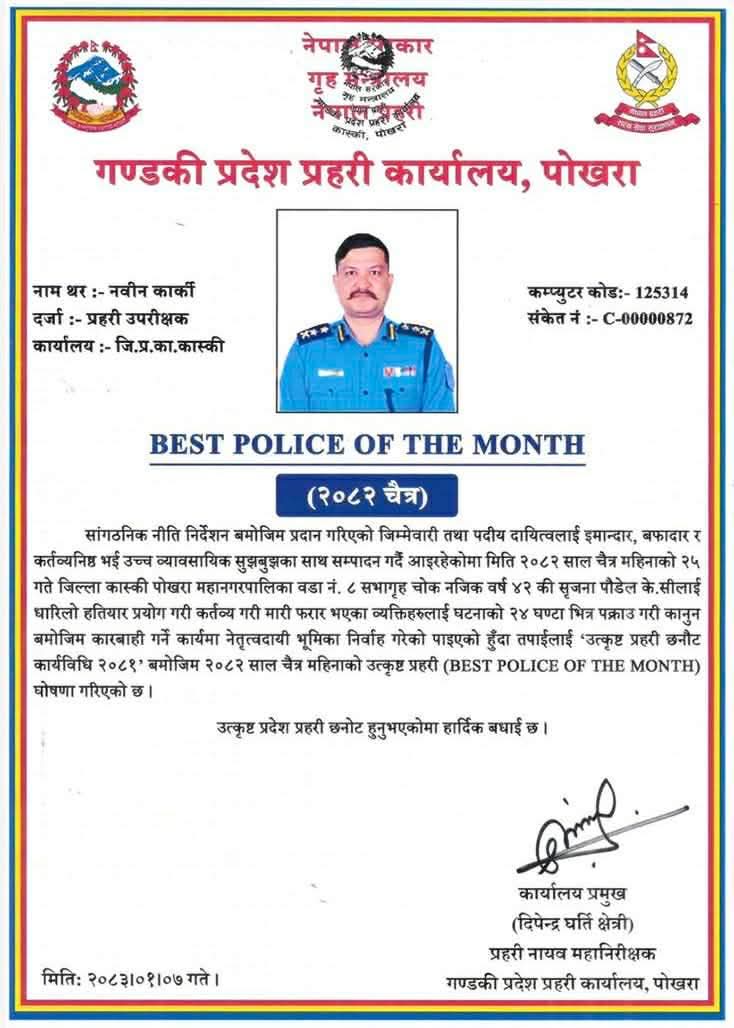 नेपाल सरकार
गृह मन्त्रालय
नेपाल प्रहरी
नेपाल सरकार
गृह मन्त्रालय
नेपाल प्रहरी
गण्डकी प्रदेश प्रहरी कार्यालय
कास्की, पोखरा
गण्डकी प्रदेश प्रहरी कार्यालय, पोखरा
नाम थर :- नवीन कार्की
दर्जा :- प्रहरी उपरीक्षक
कार्यालय :- जि.प्र.का.कास्की
कम्प्युटर कोड:- 125314
संकेत नं :- C-00000872
BEST POLICE OF THE MONTH
(२०८२ चैत्र)
सांगठनिक नीति निर्देशन बमोजिम प्रदान गरिएको जिम्मेवारी तथा पदीय दायित्वलाई इमान्दार, बफादार र
कर्तव्यनिष्ठ भई उच्च व्यावसायिक सुझबुझका साथ सम्पादन गर्दै आइरहेकोमा मिति २०८२ साल चैत्र महिनाको २५
गते जिल्ला कास्की पोखरा महानगरपालिका वडा नं. ८ सभागृह चोक नजिक वर्ष ४२ की सृजना पौडेल के.सीलाई
धारिलो हतियार प्रयोग गरी कर्तव्य गरी मारी फरार भएका व्यक्तिहरुलाई घटनाको २४ घण्टा भित्र पक्राउ गरी कानुन
बमोजिम कारबाही गर्ने कार्यमा नेतृत्वदायी भूमिका निर्वाह गरेको पाइएको हुँदा तपाईलाई ‘उत्कृष्ट प्रहरी छनौट
कार्यविधि २०८१’ बमोजिम २०८२ साल चैत्र महिनाको उत्कृष्ट प्रहरी (BEST POLICE OF THE MONTH)
घोषणा गरिएको छ ।
उत्कृष्ट प्रदेश प्रहरी छनोट हुनुभएकोमा हार्दिक बधाई छ ।
कार्यालय प्रमुख
(दिपेन्द्र घर्ति क्षेत्री)
प्रहरी नायव महानिरीक्षक
मिति: २०८३।०१।०७ गते ।
गण्डकी प्रदेश प्रहरी कार्यालय, पोखरा